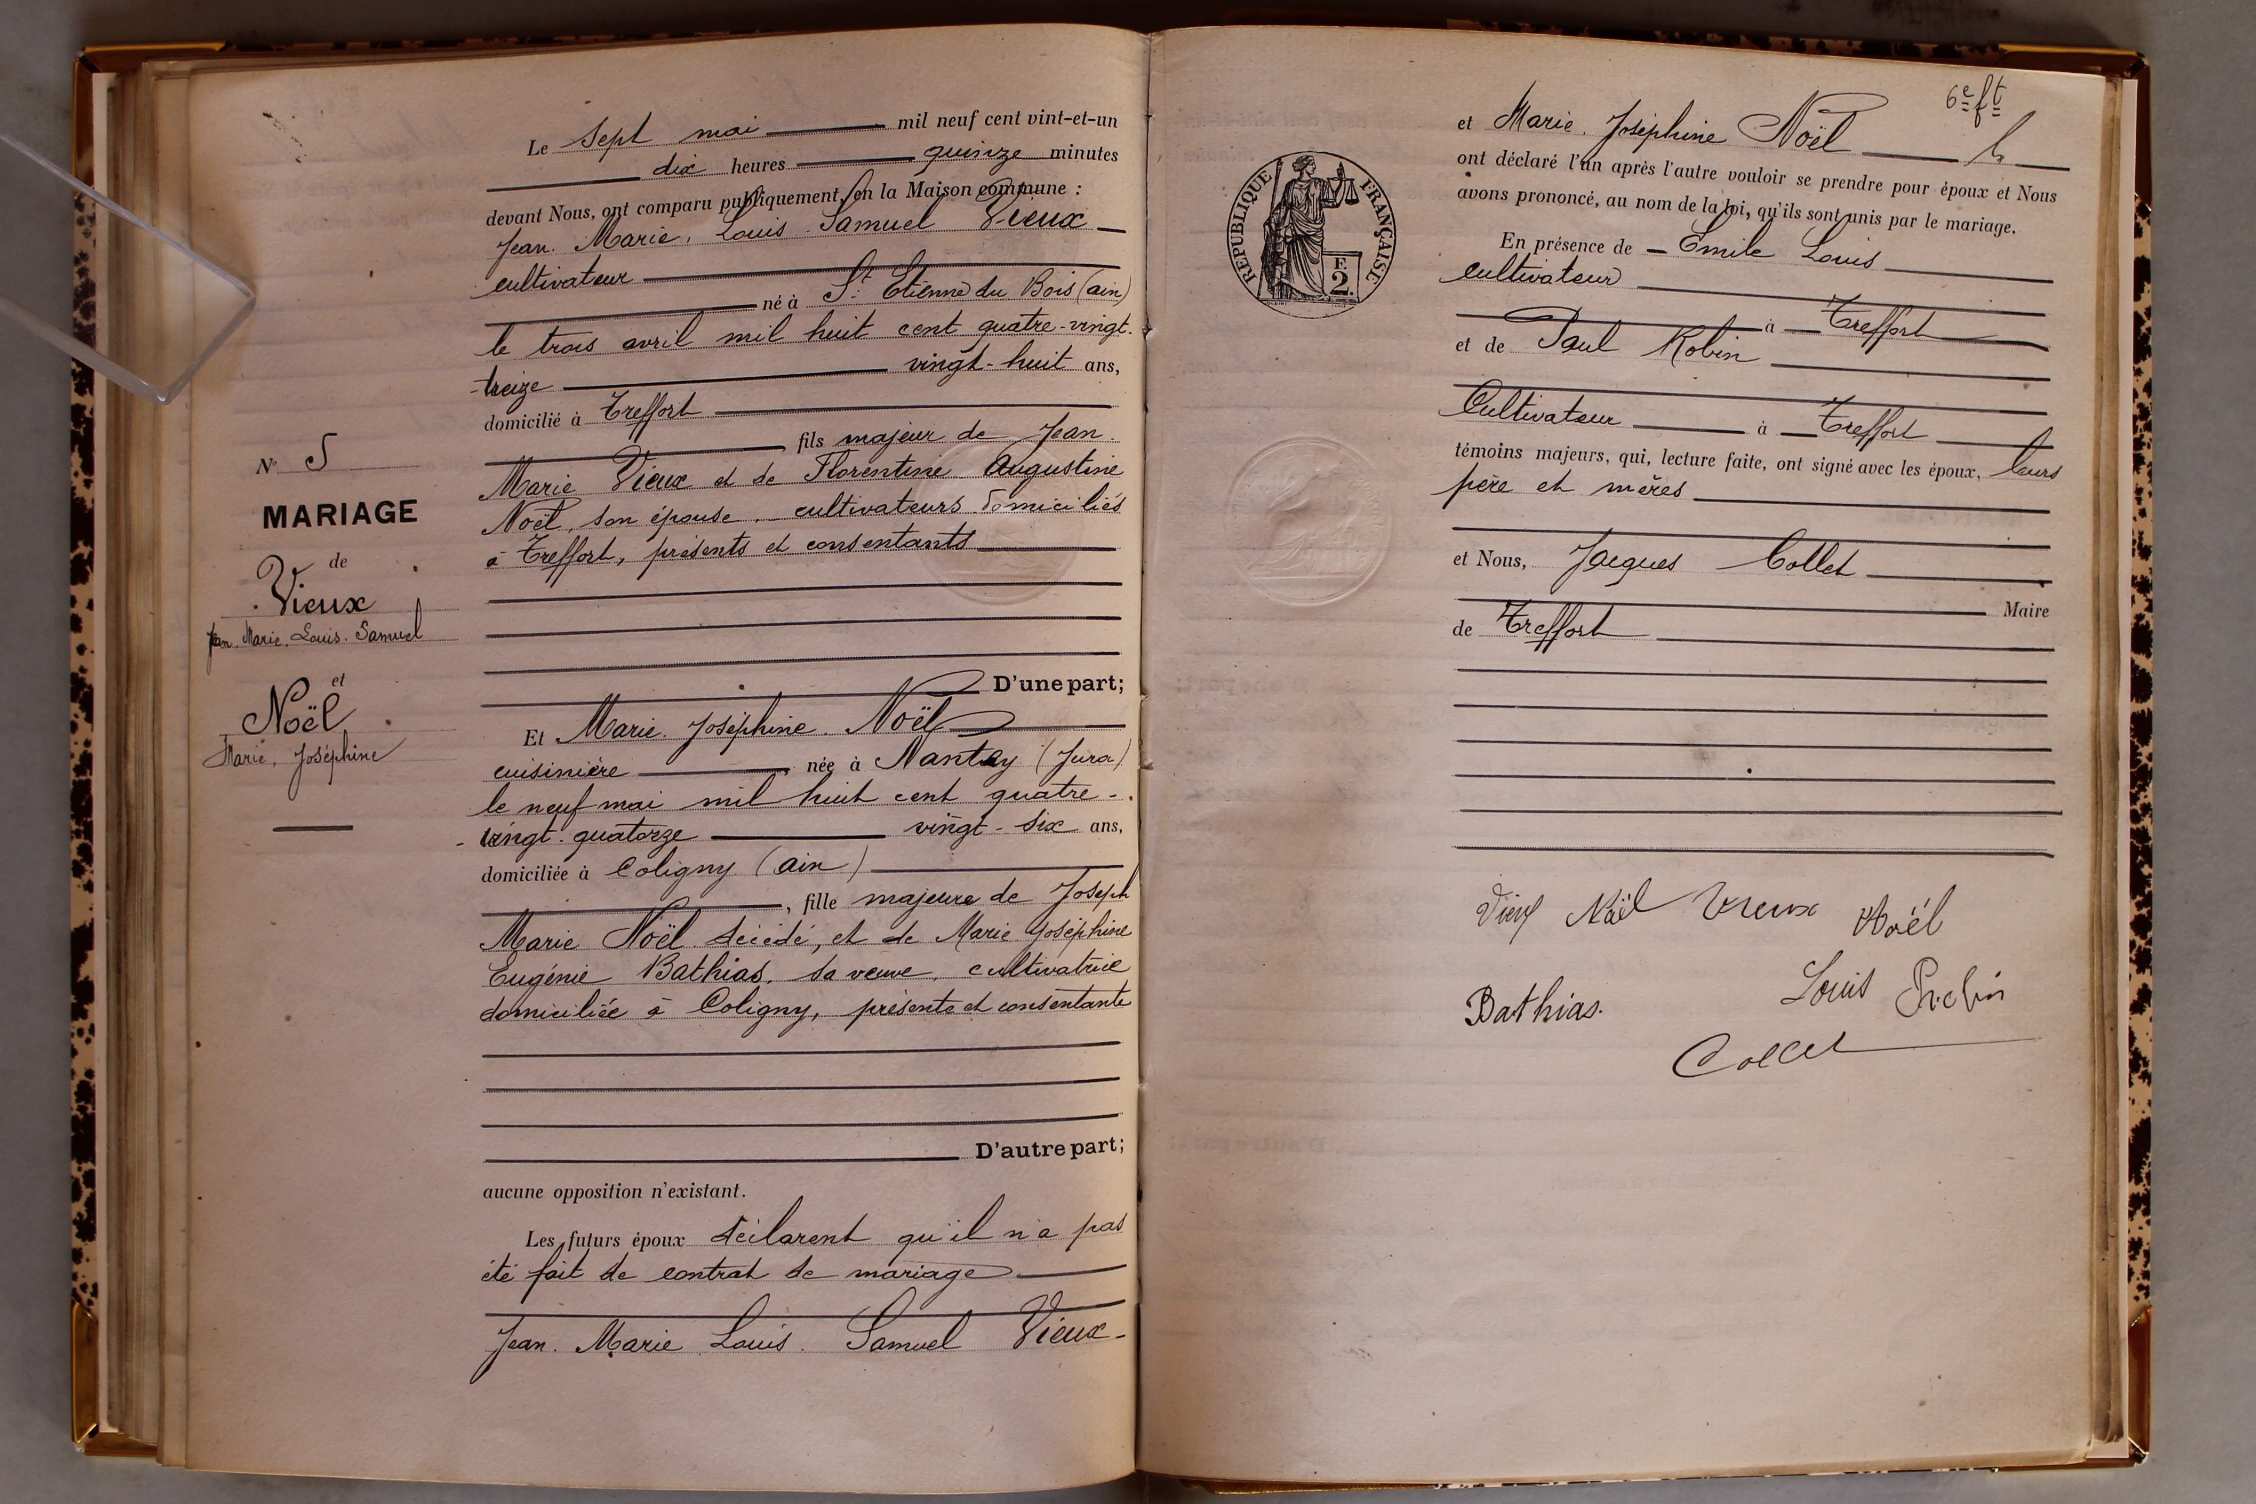 Le sept mai mil neuf cent vint-et-un
dix heures quinze minutes
devant Nous, ont comparu publiquement, en la Maison commune :
Jean. Marie. Louis. Samuel Vieux
cultivateur
né à St Etienne du Bois (ain)
le trois avril mil huit cent quatre-vingt-
-treize vingt-huit ans,
domicilié à Treffort
fils majeur de Jean.
Marie Vieux et de Florentine Augustine
Noël, son épouse, cultivateurs domiciliés
à Treffort, présents et consentants
N° 5
MARIAGE
de
Vieux
Jean. Marie. Louis. Samuel
et
Noël
Marie, Joséphine
D'une part;
Et Marie. Joséphine. Noël
cuisinière née à Nantey (Jura)
le neuf mai mil huit cent quatre-
-vingt-quatorze vingt-six ans,
domiciliée à Coligny (ain)
, fille majeure de Joseph
Marie Noël décédé, et de Marie Joséphine
Eugénie Bathias, sa veuve, cultivatrice
domiciliée à Coligny, présente et consentante
D'autre part;
aucune opposition n'existant.
Les futurs époux déclarent qu'il n'a pas
été fait de contrat de mariage
Jean. Marie. Louis. Samuel Vieux-
6e ft
et Marie. Joséphine Noël
ont déclaré l'un après l'autre vouloir se prendre pour époux et Nous
avons prononcé, au nom de la loi, qu'ils sont unis par le mariage.
En présence de Emile Louis
cultivateur
à Treffort
et de Paul Robin
Cultivateur à Treffort
témoins majeurs, qui, lecture faite, ont signé avec les époux, leurs
père et mères
et Nous, Jacques Collet
Maire
de Treffort
RÉPUBLIQUE FRANÇAISE
F.
2.
Vieux Noël Vieux Noël
Louis Robin
Bathias.
Collet